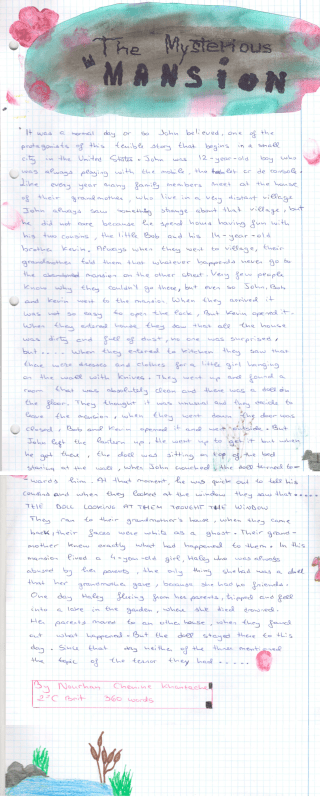 The Mysterious
MANSION
It was a normal day or so John believed, one of the
protagonists of this terrible story that begins in a small
city in the United States. John was 12-year-old boy who
was always playing with the mobile, the tablet or de console.
Like every year many family members meet at the house
of their grandmother, who live in a very distant village.
John always saw something strange about that village, but
he did not care because he spend hours having fun with
his two cousins, the little Bob and his 14-year-old
brother Kevin. Always when they went to village, their
grandmother told them that whatever happened never go to
the abandoned mansion on the other street. Very few people
know why they couldn't go there, but even so John, Bob
and Kevin went to the mansion. When they arrived it
was not so easy to open the lock, but Kevin opened it.
When they entered house they saw that all the house
was dirty and full of dust, no one was surprised,
but..... When they entered to kitchen they saw that
there were dresses and clothes for a little girl hanging
on the wall with knives. They went up and found a
room that was absolutely clean and there was a doll on
the floor. They thought it was unusual and they decide to
leave the mansion, when they went down the door was
closed, Bob and Kevin opened it and went outside. But
John left the lantern up, he went up to get it but when
he got there, the doll was sitting on top of the bed
staring at the wall, when John touched, the doll turned to-
wards him. At that moment, he was quick out to tell his
cousins and when they looked at the window they saw that.....
THE DOLL LOOKING AT THEM THOUGHT THE WINDOW
They ran to their grandmother's house, when they came
back, their faces were white as a ghost. Their grand-
mother knew exactly what had happened to them. In this
mansion lived a 4-year-old girl, Haley who was always
abused by her parents, the only thing she had was a doll
that her grandmother gave, because she had no friends.
One day Haley fleeing from her parents, tripped and fell
into a lake in the garden, where she died drowned.
Her parents moved to an other house, when they found
out what happened. But the doll stayed there to this
day. Since that day neither of the three mentioned
the topic of the terror they had.....
By Nourhan Chenine Khantache
2°C Brit 360 words